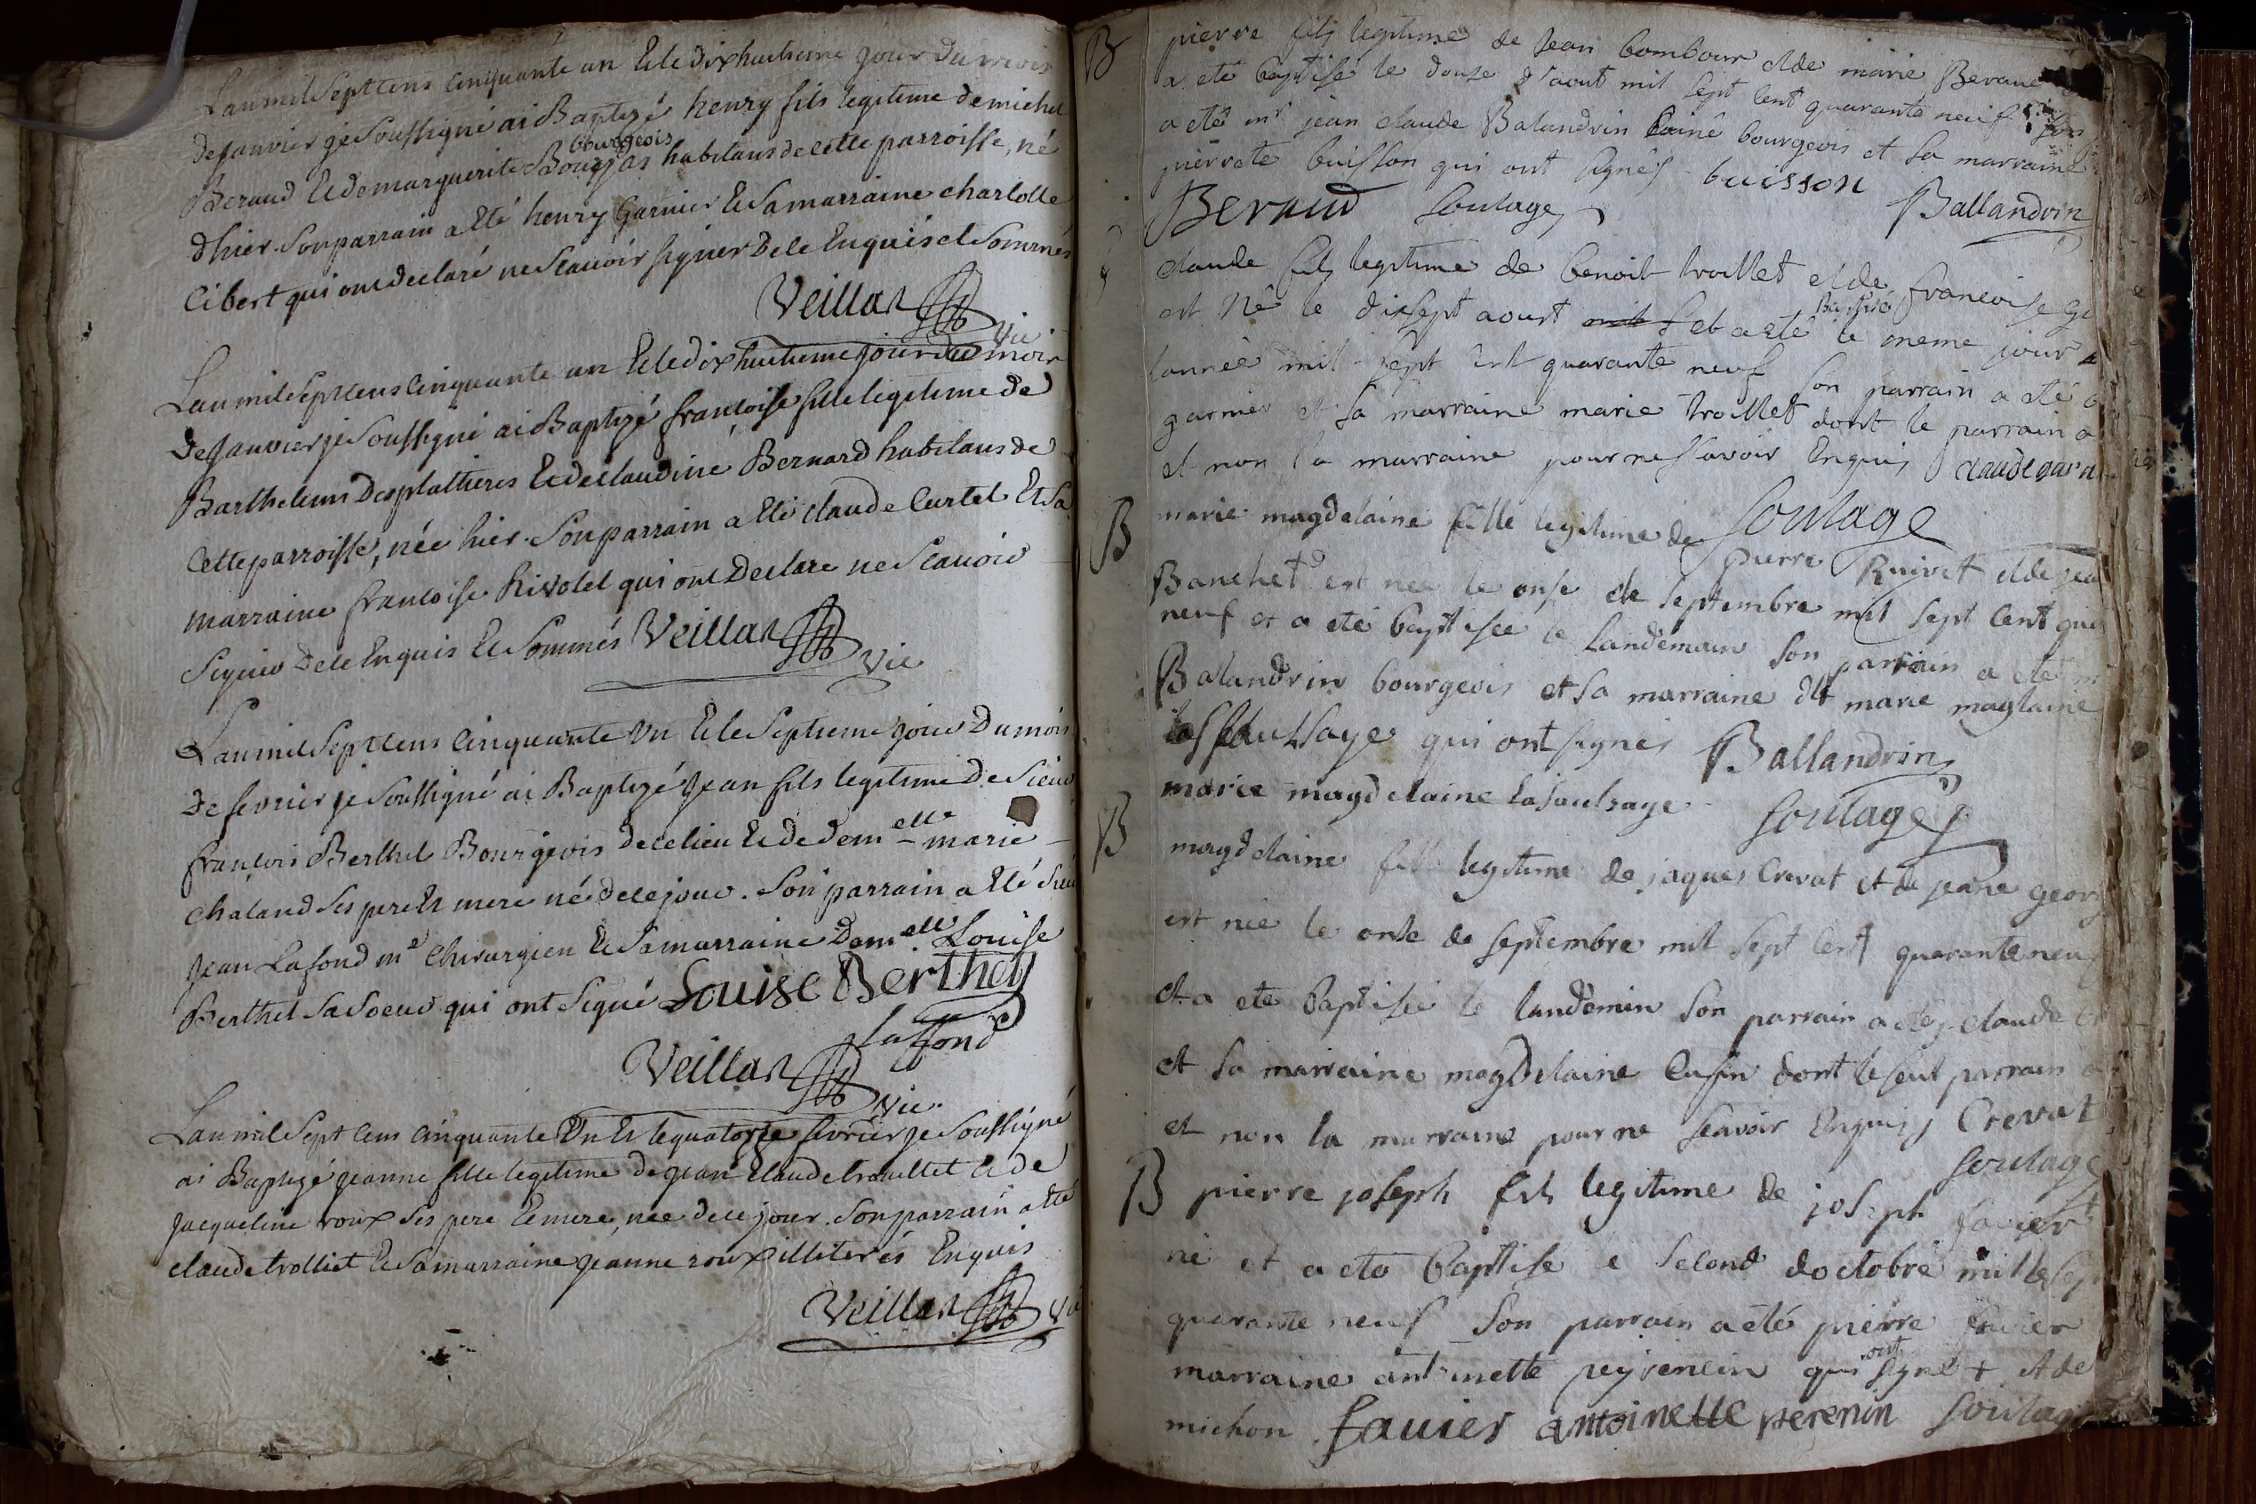 Lan mil Sept Cens Cinquante un Et le Dix huitieme jour du mois
de janvier je Soussigné ai Baptizé henry fils legitime de michel
bourgeois
Beraud Et de marguerite habitans de cette parroisse, né
d'hier. Son parrain a Eté henry Garnier Et Sa marraine charlotte
Cibert qui ont declaré ne Scavoir signer De ce Enquis et Sommés
Veillas Vic
Lan mil Sept Cens Cinquante un Et le dix huitieme jour du mois
De janvier je Soussigné ai Baptizé françoise fille legitime de
Barthelemi Desplattieres Et de claudine Bernard habitans de
Cette parroisse, née hier. Son parrain a Eté claude Curtet Et Sa
marraine francoise Rivolet qui ont Declare ne Scavoir
Signer De ce Enquis Et Sommés Veillas Vic
Lan mil Sept Cens Cinquante Un Et le Septieme jour Du mois
De fevrier je Soussigné ai Baptizé Jean fils legitime De Sieur
francois Berthet Bourgeois de ce lieu Et de Demelle marie
chaland Ses pere Et mere né de ce jour. Son parrain a Eté Sieur
Jean Lafond me Chirurgien Et Sa marraine Damelle Louise
Berthet Sa Soeur qui ont Signé Louise Berthet
Laffond
Veillas Vic
Lan mil Sept Cens Cinquante Un Et le quatorze fevrier je Soussigné
ai Baptizé jeanne fille legitime de jean Claude trouillet Et de
jacqueline roux Ses pere Et mere, née de ce jour. Son parrain a Eté
claude trolliet Et Sa marraine jeanne roux illiterés Enquis
Veillas Vic
B pierre fils legitime de Jean bombour et de marie Beraud
a eté baptisé le douze d'aout mil sept cent quarante neuf son
a eté mr jean claude Balandrin lainé bourgeois et sa marraine
pierrete buisson qui ont signés buisson
Beraud Soulage Ballandrin
claude fils legitime de benoit troillet et de francoise
Baptisé
est Né le dixsept aoust et a eté le meme jour
lannée mil sept cent quarante neuf Son parrain a eté
garnier et sa marraine marie troillet dont le parrain a
et non la marraine pour ne scavoir Enquis claude garni
Soulage
B marie magdelaine fille legitime de pierre Ruivet et de jea
Banchet est née le onse de septembre mil sept cent qua
neuf et a eté baptisée le landemain son parrain a eté
Balandrin bourgeois et sa marraine dlle marie maglaine
lassaussaye qui ont signés Ballandrin
marie magdelaine Lasaulsaye Soulage
B magdelaine fille legitime de jaques Crevat et de jeane georg
est née le onse de septembre mil sept cent quarante neuf
et a eté baptisée le landemin son parrain a eté claude
et sa marraine magdelaine Cusin dont le seul parrain a
et non la marraine pour ne scavoir Enquis Crevat
Soulage
B pierre joseph fils legitime de joseph favier
né et a eté Baptise le second doctobre mille sept
quarante neuf Son parrain a eté pierre favier
ont
marraine antoinette peyrenein qui signé + et de
michon favier antoinette perenin Soulage